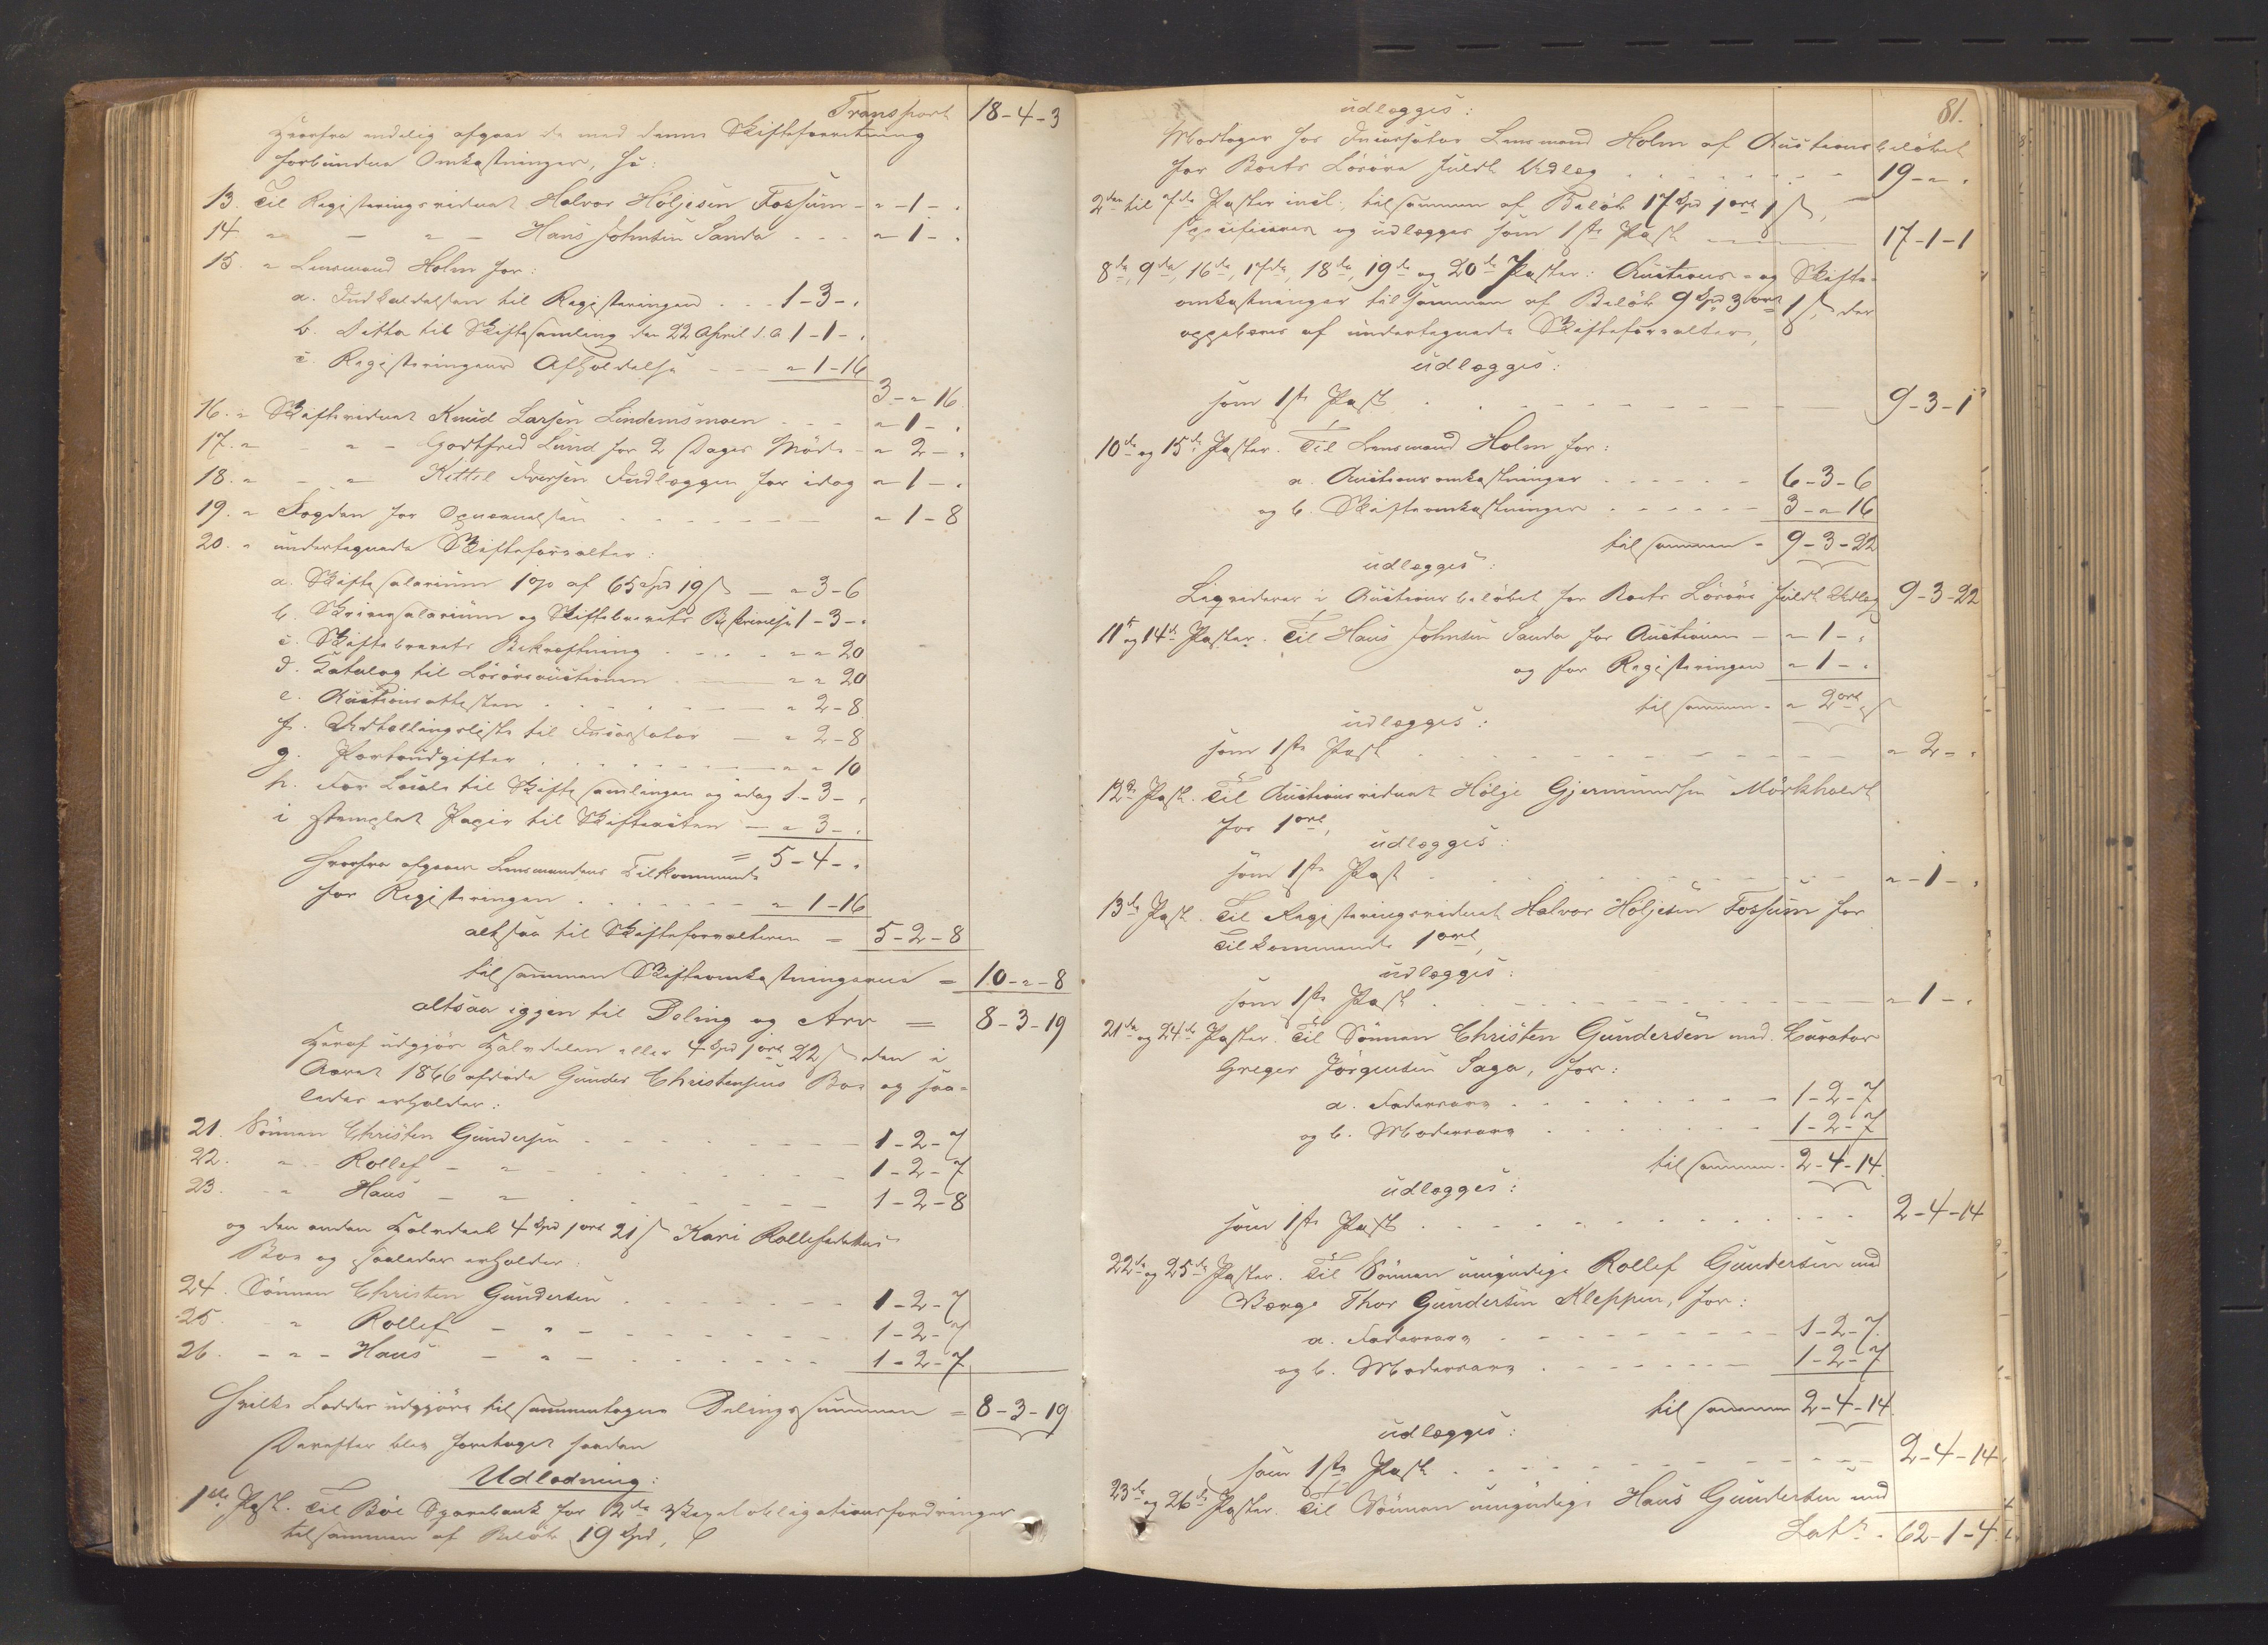 Transport 18-4-3
Hvorfra endelig afgaar de med denne Skifteforretning
forbundne Omkostninger, sc:
13. Til Registreringsvidnet Halvor Höljesen Fossum - " - 1 - "
14 " - " - Hans Johnsen Sanda - - - " - 1 - "
15. " Lensmand Holm for:
a. Indkaldelsen til Registeringen - - - 1 - 3 - "
b. Ditto til Skiftesamling den 22 April d. A. 1 - 1 - "
c. Registeringens Afholdelse - - - " 1 - 16
3 - " 16
16. " Skiftevidnet Knud Larsen Lindemsmoen - - - " 1 - "
17. " - " - Godtfred Lund for 2 Dages Möde - " 2 - "
18. " - " Kittil Iversen Indlæggen for idag " 1 - "
19. " Fogden for Decisionen - - - - " 1 - 8
20. " undertegnede Skifteforvalter:
a. Skiftesalarium 1% af 65 Spd 19 ß - " 3 - 6
b. Skriversalarium og Skiftebrevets Beskrivelse 1 - 3 - "
c. Skiftebrevets Bekræftning - - - - " " 20
d. Katalog til Lösöreauctionen - - - " " 20
e. Auctionsattesten - - - - - " 2 - 8
f. Udstællingsliste til Incassator - " 2 - 8
g. Portoudgifter - - - - - " " 10
h. For Locale til Skiftesamlingen og idag 1 - 3 - "
i Stemplet Papir til Skifteacten - " 3 - "
= 5 - 4 - "
hvorfra afgaar Lensmandens Tilkommende
for Registeringen - - - - - " 1 - 16
altsaa til Skifteforvalteren = 5 - 2 - 8
tilsammen Skifteomkostningerne = 10 - " - 8
altsaa igjen til Deling og Arv = 8 - 3 - 19
Heraf udgjör Halvdelen eller 4 Spd 1 ort 22 ß den i
Aaret 1866 afdöde Gunder Christensens Bo og saa-
ledes erholder:
21. Sönnen Christen Gundersen - - - - 1 - 2 - 7
22. " - Rollef - " - - - - - 1 - 2 - 7
23. " Hans - " - - - - - 1 - 2 - 8
og den anden Halvdeel 4 Spd 1 ort 21 ß Kari Rollefsdatters
Bo og saaledes erholder:
24. Sönnen Christen Gundersen - - - - 1 - 2 - 7
25. " Rollef - " - - - - - 1 - 2 - 7
26. - " - Hans - " - - - - - 1 - 2 - 7
Hvilke Lodder udgjöre tilsammentagne Delingssummen = 8 - 3 - 19
Derefter blev foretaget saadan
Udlodning:
1ste Post. Til Böe Sparebank for 2de Vexelobligationsfordringer
tilsammen af Belöb 19 Spd,
81.
udlægges:
Modtager hos Incassator Lensmand Holm af Auctionsbelöbet
for Boets Lösöre fuldt Udlæg - - - - - - 19 - " - "
2den til 7de Poster incl., tilsammen af Belöb 17 Spd 1 ort 1 ß,
specificeres og udlægges som 1ste Post - - - 17 - 1 - 1
8de, 9de, 16de, 17de, 18de, 19de og 20de Poster: Auctions- og Skifte-
omkostninger tilsammen af Belöb 9 Spd 3 ort 1 ß, der
oppebæres af undertegnede Skifteforvalter,
udlægges:
som 1ste Post - - - - - - - 9 - 3 - 1
10de og 15de Poster. Til Lensmand Holm for:
a. Auctionsomkostninger - - - - - 6 - 3 - 6
og b. Skifteomkostninger - - - - - 3 - " 16
tilsammen - 9 - 3 - 22
udlægges:
Liqviderer i Auctionsbelöbet for Boets Lösöre fuldt Udlæg 9 - 3 - 22
11te og 14de Poster. Til Hans Johnsen Sanda for Auctionen - " 1 - "
og for Registeringen " 1 - "
tilsammen - " 2 ort " ß
udlægges:
som 1ste Post - - - - - - - " 2 - "
12te Post. Til Auctionsvidnet Hölje Gjermundsen Mörkholdt
for 1 ort,
udlægges:
som 1ste Post - - - - - - - " - 1 - "
13de Post. Til Registeringsvidnet Halvor Höljesen Fossum for
Tilkommende 1 ort,
udlægges:
som 1ste Post - - - - - - - " 1 - "
21de og 24de Poster. Til Sönnen Christen Gundersen med Curator
Greger Jörgensen Saga, for:
a. Fadersarv - - - - - - 1 - 2 - 7
og b. Modersarv - - - - - 1 - 2 - 7
tilsammen - 2 - 4 - 14
udlægges:
som 1ste Post - - - - - - - 2 - 4 - 14
22de og 25de Poster. Til Sönnen umyndige Rollef Gundersen med
Værge Thor Gundersen Kleppen, for:
a. Fadersarv - - - - - - 1 - 2 - 7
og b. Modersarv - - - - - 1 - 2 - 7
tilsammen 2 - 4 - 14
udlægges:
som 1ste Post - - - - - - - 2 - 4 - 14
23de og 26de Poster. Til Sönnen umyndige Hans Gundersen med
Lats. - 62 - 1 - 4